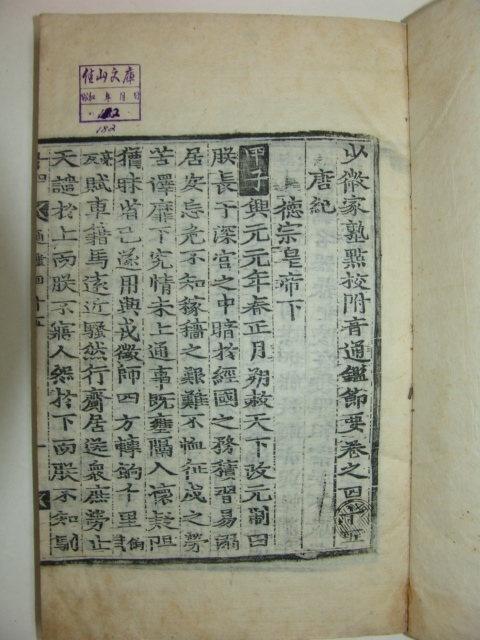 少微家塾點校附音通鑑節要卷之四十五
唐紀
德宗皇帝下
甲子興元元年春正月朔赦天下改元制曰
朕長于深宮之中暗於經國之務積習易溺
居安忘危不知稼穡之艱難不恤征戍之勞
苦澤靡下究情未上通事旣壅隔人懷疑阻
猶昧省己遂用興戎徵師四方轉餉千里
賦車籍馬遠近騷然行齎居送衆庶勞止
天譴於上而朕不寤人怨於下而朕不知馴
通鑑四十五
山文庫
昭和 年 月 日
182